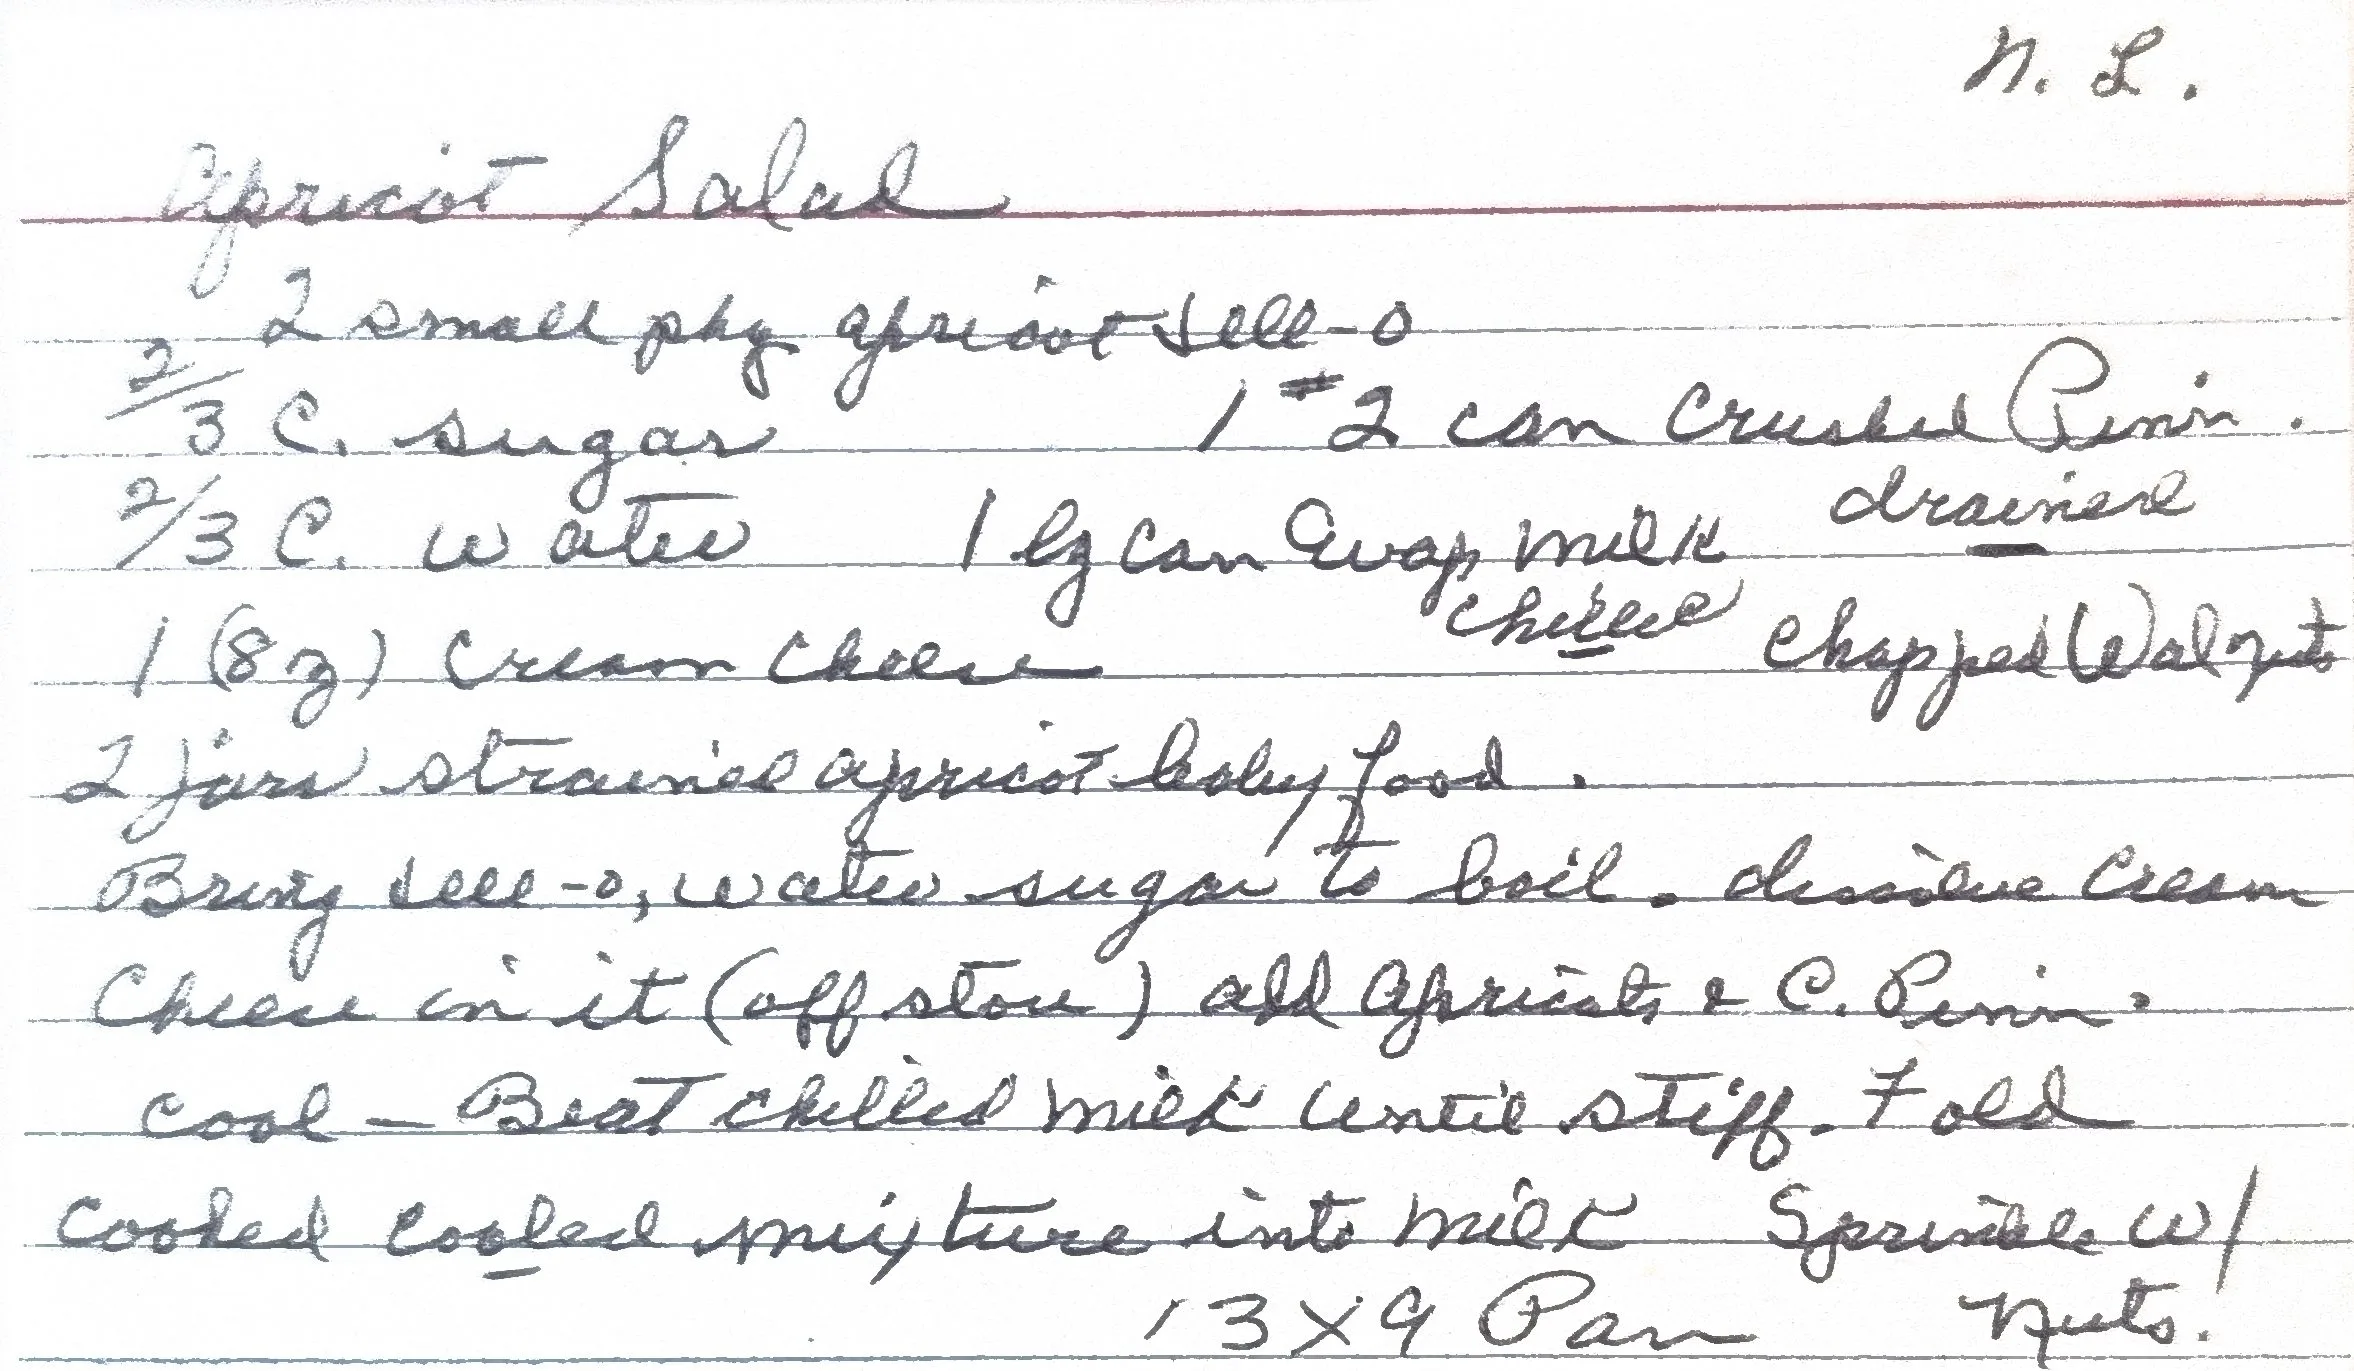 N. L.
Apricot Salad
2 small pkg apricot Jell-o
2/3 C. sugar 1 #2 can Crushed Pinn.
drained
2/3 C. water 1 lg can Evap Milk
chilled
1 (8 z) Cream Cheese Chopped Walnuts
2 jars strained apricot baby food.
Bring Jell-o, water sugar to boil. dissolve Cream
Cheese in it (off stove) add Apricots & C. Pinn.
Cool – Beat chilled Milk until stiff. Fold
Cooked Cooled mixture into Milk Sprinkle w/
Nuts.
13 X 9 Pan